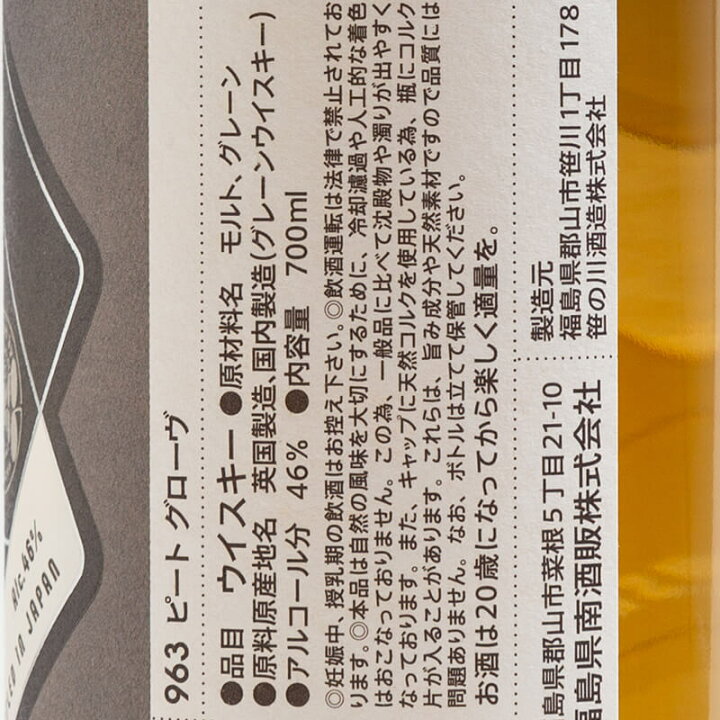 963 ピートグローヴ
●品目 ウイスキー ●原材料名 モルト、グレーン
●原料原産地名 英国製造、国内製造(グレーンウイスキー)
●アルコール分 46% ●内容量 700ml
◎妊娠中、授乳期の飲酒はお控え下さい。◎飲酒運転は法律で禁止されてお
ります。◎本品は自然の風味を大切にするために、冷却濾過や人工的な着色
はおこなっておりません。この為、一般品に比べて沈殿物や濁りが出やすく
なっております。また、キャップに天然コルクを使用している為、瓶にコルク
片が入ることがあります。これらは、旨み成分や天然素材ですので品質には
問題ありません。なお、ボトルは立てて保管してください。
お酒は20歳になってから楽しく適量を。
製造元
福島県郡山市笹川1丁目178
笹の川酒造株式会社
島県郡山市菜根5丁目21-10
福島県南酒販株式会社
Alc.46%
IN JAPAN